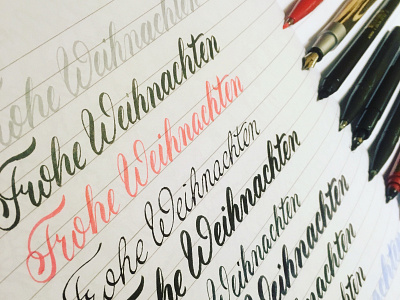 Frohe Weihnachten
Frohe Weihnachten
Frohe Weihnachten
Frohe Weihnachten
Frohe Weihnachten
Weihnachten
Weihnachten
Weihnachten